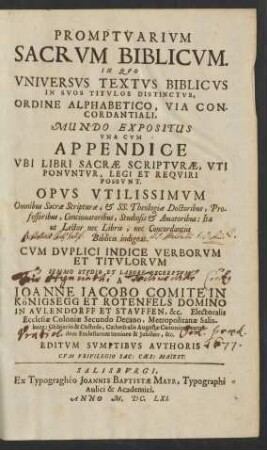 PROMPTVARIVM
SACRVM BIBLICVM.
IN QVO
VNIVERSVS TEXTVS BIBLICVS
IN SVOS TITVLOS DISTINCTVS,
ORDINE ALPHABETICO, VIA CON-
CORDANTIALI,
MUNDO EXPOSITUS
VNA CVM
APPENDICE
VBI LIBRI SACRÆ SCRIPTVRÆ, VTI
PONVNTVR, LEGI ET REQVIRI
POSSVNT.
OPVS VTILISSIMVM
Omnibus Sacræ Scripturæ, & SS. Theologiæ Doctoribus, Pro-
fessoribus, Concionatoribus, Studiosis & Amatoribus: Ita
ut Lector nec Libris, nec Concordantiis
Biblicis indigeat.
CVM DUPLICI INDICE VERBORVM
ET TITVLORVM
STUDIO ET LABORE
IOANNE IACOBO COMITE IN
KöNIGSEGG ET ROTENFELS DOMINO
IN AVLENDORFF ET STAVFFEN. &c. Electoralis
Ecclesiæ Coloniæ Secundo Decano, Metropolitanæ Salis-
EDITUM SUMPTIBUS AVTHORIS
1677.
CVM PRIVILEGIO SAC: CÆS: MAIEST.
SALISBVRGI,
Ex Typographéo JOANNIS BAPTISTÆ MAYR, Typographi
Aulici & Academici.
ANNO M. DC. LXI.